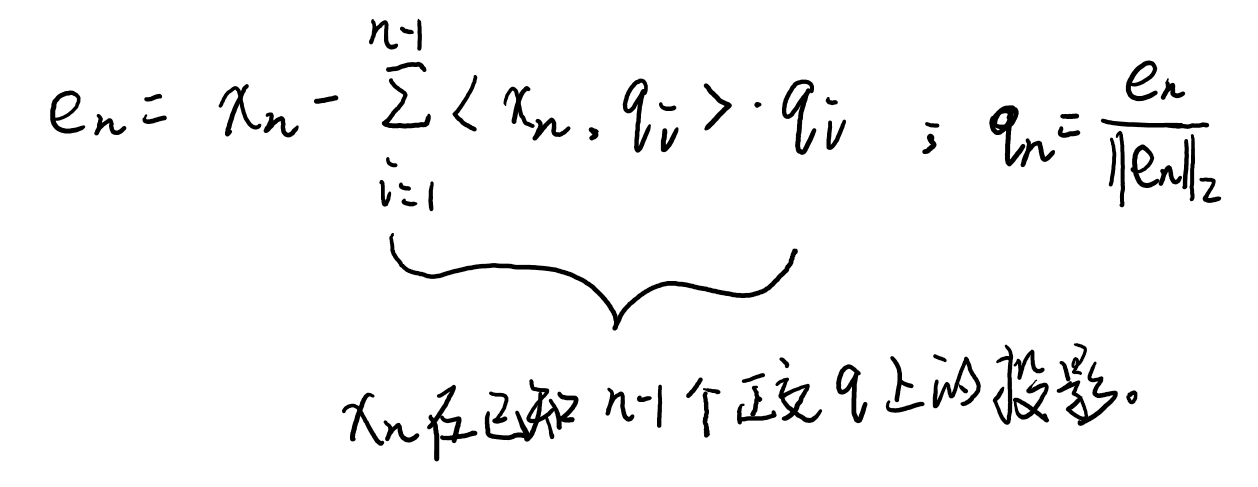 eₙ = xₙ - ∑_{i=1}^{n-1} < xₙ, qᵢ > · qᵢ ; qₙ = eₙ / ‖eₙ‖₂
xₙ在已知 n-1 个正交 q 上的投影。